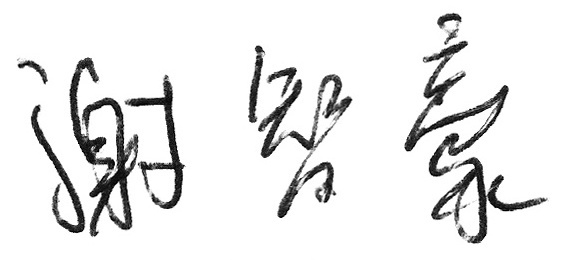 谢智豪